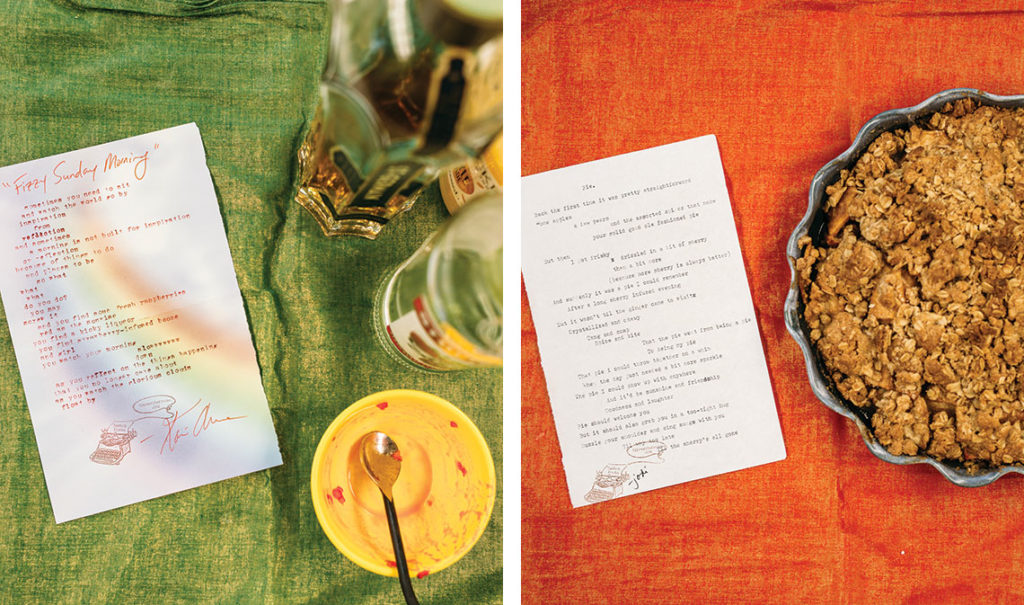 "Fizzy Sunday Morning"
sometimes you need to sit
and watch the world go by
inspiration
from
reflection
and sometimes
a morning is not built for inspiration
or reflection
of things to do
and things to be
so what
what
do you do?
you may
and you find some fresh raspberries
you find a kicky liqueur
you find
and sip
you watch your morning
down
as you reflect on the things happening
that you no longer care about
as you watch the glorious clouds
float by
Pie.
Back the first time it was pretty straightforward
apples
a few years and the assorted
your solid good ole fashioned pie
But then I got frisky & drizzled in a bit of sherry
then a bit more
(because more sherry is always better)
And suddenly it was a pie I could remember
After a long sherry infused evening
But it wasn't til the ginger came to visit
Crystallized and chewy
Tang and
and bite
That the pie went from being a pie
To being my pie
That pie I could throw together on a whim
When the day just needed a bit more sparkle
The pie I could show up with anywhere
And it'd be sunshine and friendship
Goodness and laughter
Pie should welcome you
But it should also grab you in a too-tight hug
Nuzzle your shoulder and sing songs with you
Til way too late
the sherry's all gone
Jodi